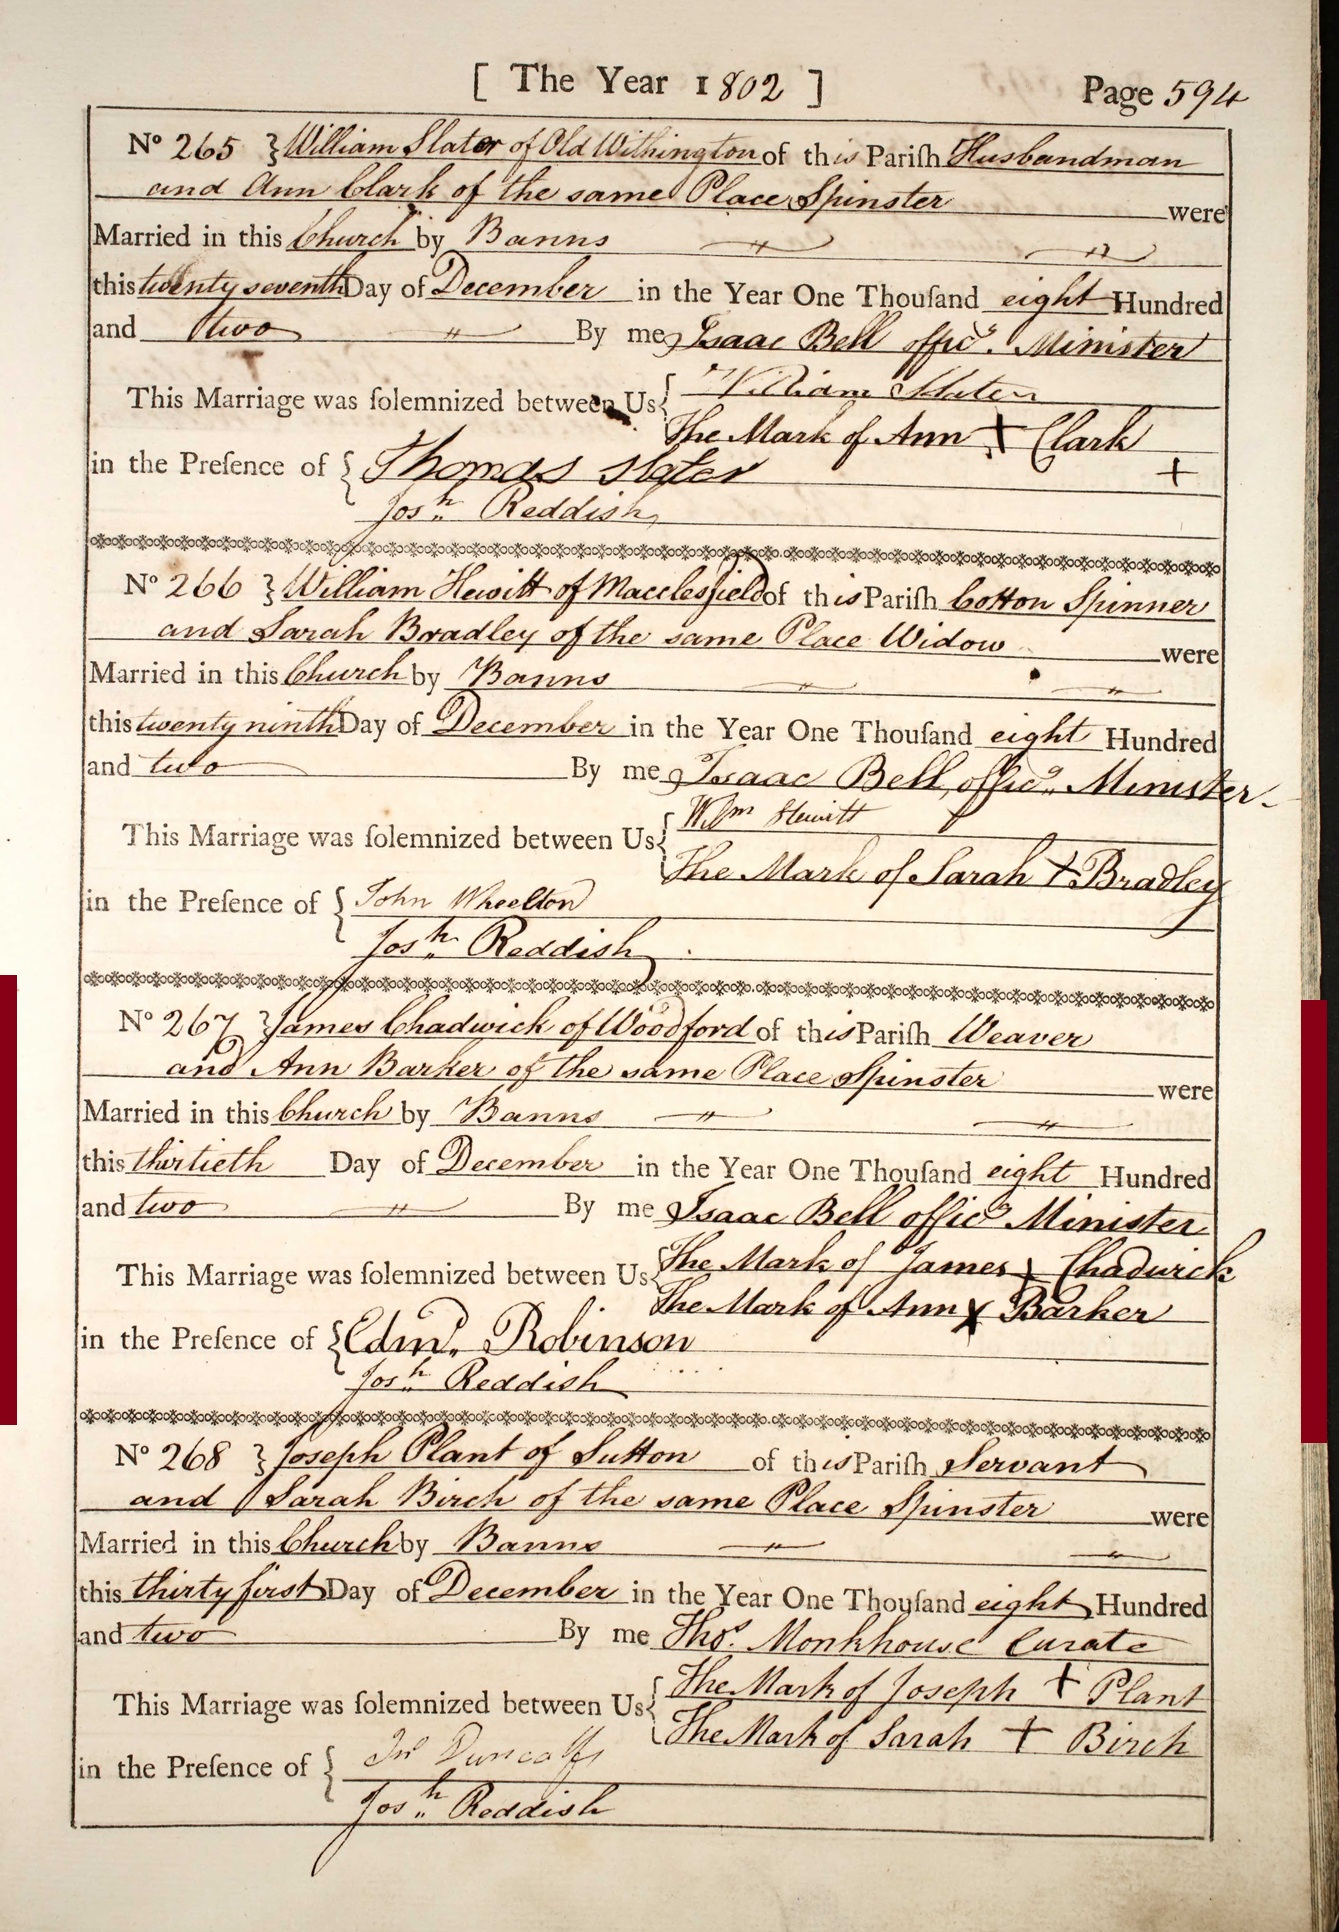 [ The Year 1802 ] Page 594
No 265 } William Slater of Old Withington of this Pariſh Husbandman
and Ann Clark of the same Place Spinster were
Married in this Church by Banns
this twenty seventh Day of December in the Year One Thouſand eight Hundred
and two By me Isaac Bell offics. Minister
This Marriage was ſolemnized between Us { William Slater
The Mark of Ann + Clark
in the Preſence of { Thomas Slater +
Josh. Reddish
No 266 } William Hewitt of Macclesfield of this Pariſh Cotton Spinner
and Sarah Bradley of the same Place Widow were
Married in this Church by Banns
this twenty ninth Day of December in the Year One Thouſand eight Hundred
and two By me Isaac Bell, officg. Minister
This Marriage was ſolemnized between Us { Willm Hewitt
The Mark of Sarah + Bradley
in the Preſence of { John Wheelton
Josh. Reddish
No 267 } James Chadwick of Woodford of this Pariſh Weaver
and Ann Barker of the same Place Spinster were
Married in this Church by Banns
this thirtieth Day of December in the Year One Thouſand eight Hundred
and two By me Isaac Bell officg Minister
This Marriage was ſolemnized between Us { The Mark of James + Chadwick
The Mark of Ann X Barker
in the Preſence of { Edmd. Robinson
Josh. Reddish
No 268 } Joseph Plant of Sutton of this Pariſh Servant
and Sarah Birch of the same Place Spinster were
Married in this Church by Banns
this thirty first Day of December in the Year One Thouſand eight Hundred
and two By me Thos. Monkhouse Curate
This Marriage was ſolemnized between Us { The Mark of Joseph + Plant
The Mark of Sarah + Birch
in the Preſence of { Jno Duncalf
Josh. Reddish